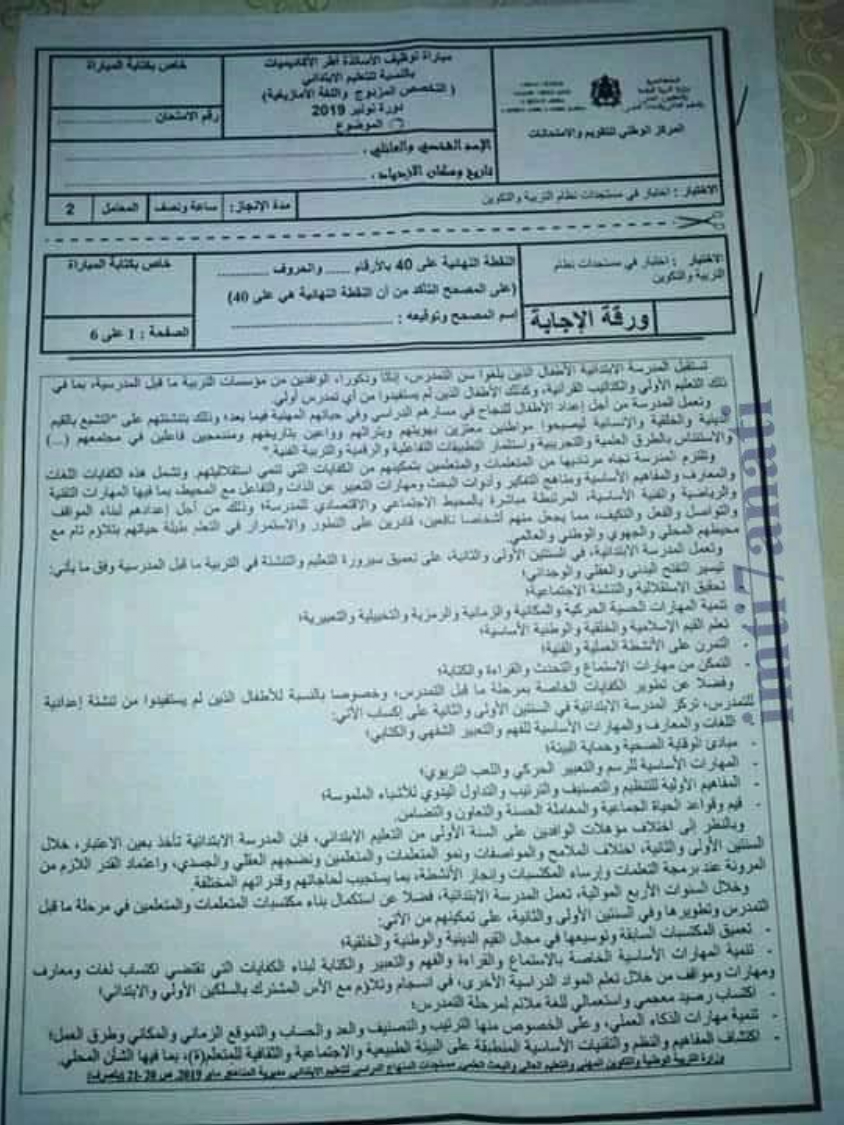 المركز الوطني للتقويم والامتحانات
مباراة توظيف الأساتذة أطر الأكاديميات
بالنسبة للتعليم الابتدائي
( التخصص المزدوج واللغة الأمازيغية)
دورة نونبر 2019
الموضوع
خاص بكتابة المباراة
رقم الامتحان
الإسم الشخصي والعائلي .
تاريخ ومكان الازدياد .
الاختبار : اختبار في مستجدات نظام التربية والتكوين
مدة الإنجاز: ساعة ونصف المعامل 2
الاختبار : اختبار في مستجدات نظام
التربية والتكوين
ورقة الإجابة
النقطة النهائية على 40 بالأرقام ..... والحروف
(على المصحح التأكد من أن النقطة النهائية هي على 40)
اسم المصحح وتوقيعه :
خاص بكتابة المباراة
الصفحة : 1 على 6
تستقبل المدرسة الابتدائية الأطفال الذين بلغوا سن التمدرس، إناثا وذكورا، الوافدين من مؤسسات التربية ما قبل المدرسية، بما في
ذلك التعليم الأولي والكتاتيب القرآنية، وكذلك الأطفال الذين لم يستفيدوا من أي تمدرس أولي.
وتعمل المدرسة من أجل إعداد الأطفال للنجاح في مسارهم الدراسي وفي حياتهم المهنية فيما بعد، وذلك بتنشئتهم على "التشبع بالقيم
الدينية والخلقية والإنسانية ليصبحوا مواطنين معتزين بهويتهم وبتراثهم وواعين بتاريخهم ومندمجين فاعلين في مجتمعهم (...)
والاستئناس بالطرق العلمية والتجريبية واستثمار التطبيقات التفاعلية والرقمية والتربية الفنية."
وتلتزم المدرسة تجاه مرتاديها من المتعلمات والمتعلمين بتمكينهم من الكفايات التي تنمي استقلاليتهم. وتشمل هذه الكفايات اللغات
والمعارف والمفاهيم الأساسية ومناهج التفكير وأدوات البحث ومهارات التعبير عن الذات والتفاعل مع المحيط، بما فيها المهارات التقنية
والرياضية والفنية الأساسية، المرتبطة مباشرة بالمحيط الاجتماعي والاقتصادي للمدرسة؛ وذلك من أجل إعدادهم لبناء المواقف
والتواصل والفعل والتكيف، مما يجعل منهم أشخاصا نافعين، قادرين على التطور والاستمرار في التعلم طيلة حياتهم بتلاؤم تام مع
محيطهم المحلي والجهوي والوطني والعالمي.
وتعمل المدرسة الابتدائية، في السنتين الأولى والثانية، على تعميق سيرورة التعليم والتنشئة في التربية ما قبل المدرسية وفق ما يأتي:
تيسير التفتح البدني والعقلي والوجداني؛
تحقيق الاستقلالية والتنشئة الاجتماعية؛
تنمية المهارات الحسية الحركية والمكانية والزمانية والرمزية والتخييلية والتعبيرية؛
تعلم القيم الإسلامية والخلقية والوطنية الأساسية؛
- التمرن على الأنشطة العملية والفنية؛
- التمكن من مهارات الاستماع والتحدث والقراءة والكتابة؛
وفضلا عن تطوير الكفايات الخاصة بمرحلة ما قبل التمدرس، وخصوصا بالنسبة للأطفال الذين لم يستفيدوا من تنشئة إعدادية
للتمدرس، تركز المدرسة الابتدائية في السنتين الأولى والثانية على إكساب الآتي:
- اللغات والمعارف والمهارات الأساسية للفهم والتعبير الشفهي والكتابي؛
- مبادئ الوقاية الصحية وحماية البيئة؛
- المهارات الأساسية للرسم والتعبير الحركي واللعب التربوي؛
- المفاهيم الأولية للتنظيم والتصنيف والترتيب والتداول اليدوي للأشياء الملموسة؛
- قيم وقواعد الحياة الجماعية والمعاملة الحسنة والتعاون والتضامن.
وبالنظر إلى اختلاف مؤهلات الوافدين على السنة الأولى من التعليم الابتدائي، فإن المدرسة الابتدائية تأخذ بعين الاعتبار، خلال
السنتين الأولى والثانية، اختلاف الملامح والمواصفات ونمو المتعلمات والمتعلمين ونضجهم العقلي والجسدي، واعتماد القدر اللازم من
المرونة عند برمجة التعلمات وإرساء المكتسبات وإنجاز الأنشطة، بما يستجيب لحاجاتهم وقدراتهم المختلفة.
وخلال السنوات الأربع الموالية، تعمل المدرسة الابتدائية، فضلا عن استكمال بناء مكتسبات المتعلمات والمتعلمين في مرحلة ما قبل
التمدرس وتطويرها وفي السنتين الأولى والثانية، على تمكينهم من الآتي:
- تعميق المكتسبات السابقة وتوسيعها في مجال القيم الدينية والوطنية والخلقية؛
- تنمية المهارات الأساسية الخاصة بالاستماع والقراءة والفهم والتعبير والكتابة لبناء الكفايات التي تقتضي اكتساب لغات ومعارف
ومهارات ومواقف من خلال تعلم المواد الدراسية الأخرى، في انسجام وتلاؤم مع الأس المشترك بالسلكين الأولي والابتدائي؛
- اكتساب رصيد معجمي واستعمالي للغة ملائم لمرحلة التمدرس؛
- تنمية مهارات الذكاء العملي، وعلى الخصوص منها الترتيب والتصنيف والعد والحساب والتموقع الزماني والمكاني وطرق العمل؛
- اكتشاف المفاهيم والنظم والتقنيات الأساسية المنطبقة على البيئة الطبيعية والاجتماعية والثقافية للمتعلم(ة)، بما فيها الشأن المحلي.
وزارة التربية الوطنية والتكوين المهني والتعليم العالي والبحث العلمي. مستجدات المنهاج الدراسي للتعليم الابتدائي. مديرية المناهج ماي 2019. ص 20-21 (بتصرف)
imti7anati